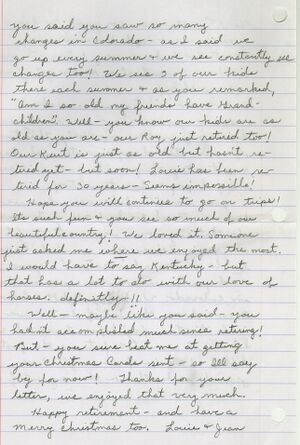 you said you saw so many
changes in Colorado - as I said we
go up every summer & we see constantly
changes too! We see 2 of our kids
there each summer & as you remarked,
"Am I so old my friends have Grand-
children". Well - you know our kids are as
old as you are - our Roy just retired too!
Our Kurt is just as old but hasn't re-
tired yet - but soon! Louie has been re-
tired for 30 years - Seems impossible!
Hope you will continues to go on trips!
Its such fun & you see so much of our
beautiful country! We loved it. Someone
just asked me where we enjoyed the most.
I would have to say Kentucky - but
that has a lot to do with our love of
horses. definitly!!
Well - maybe like you said - you
hadn't accomplished much since retiring!
But - you sure beat me at getting
your Christmas Cards sent - so I'll say
by for now! Thanks for your
letter, we enjoyed that very much.
Happy retirement - and have a
Merry Christmas too. Louie & Jean